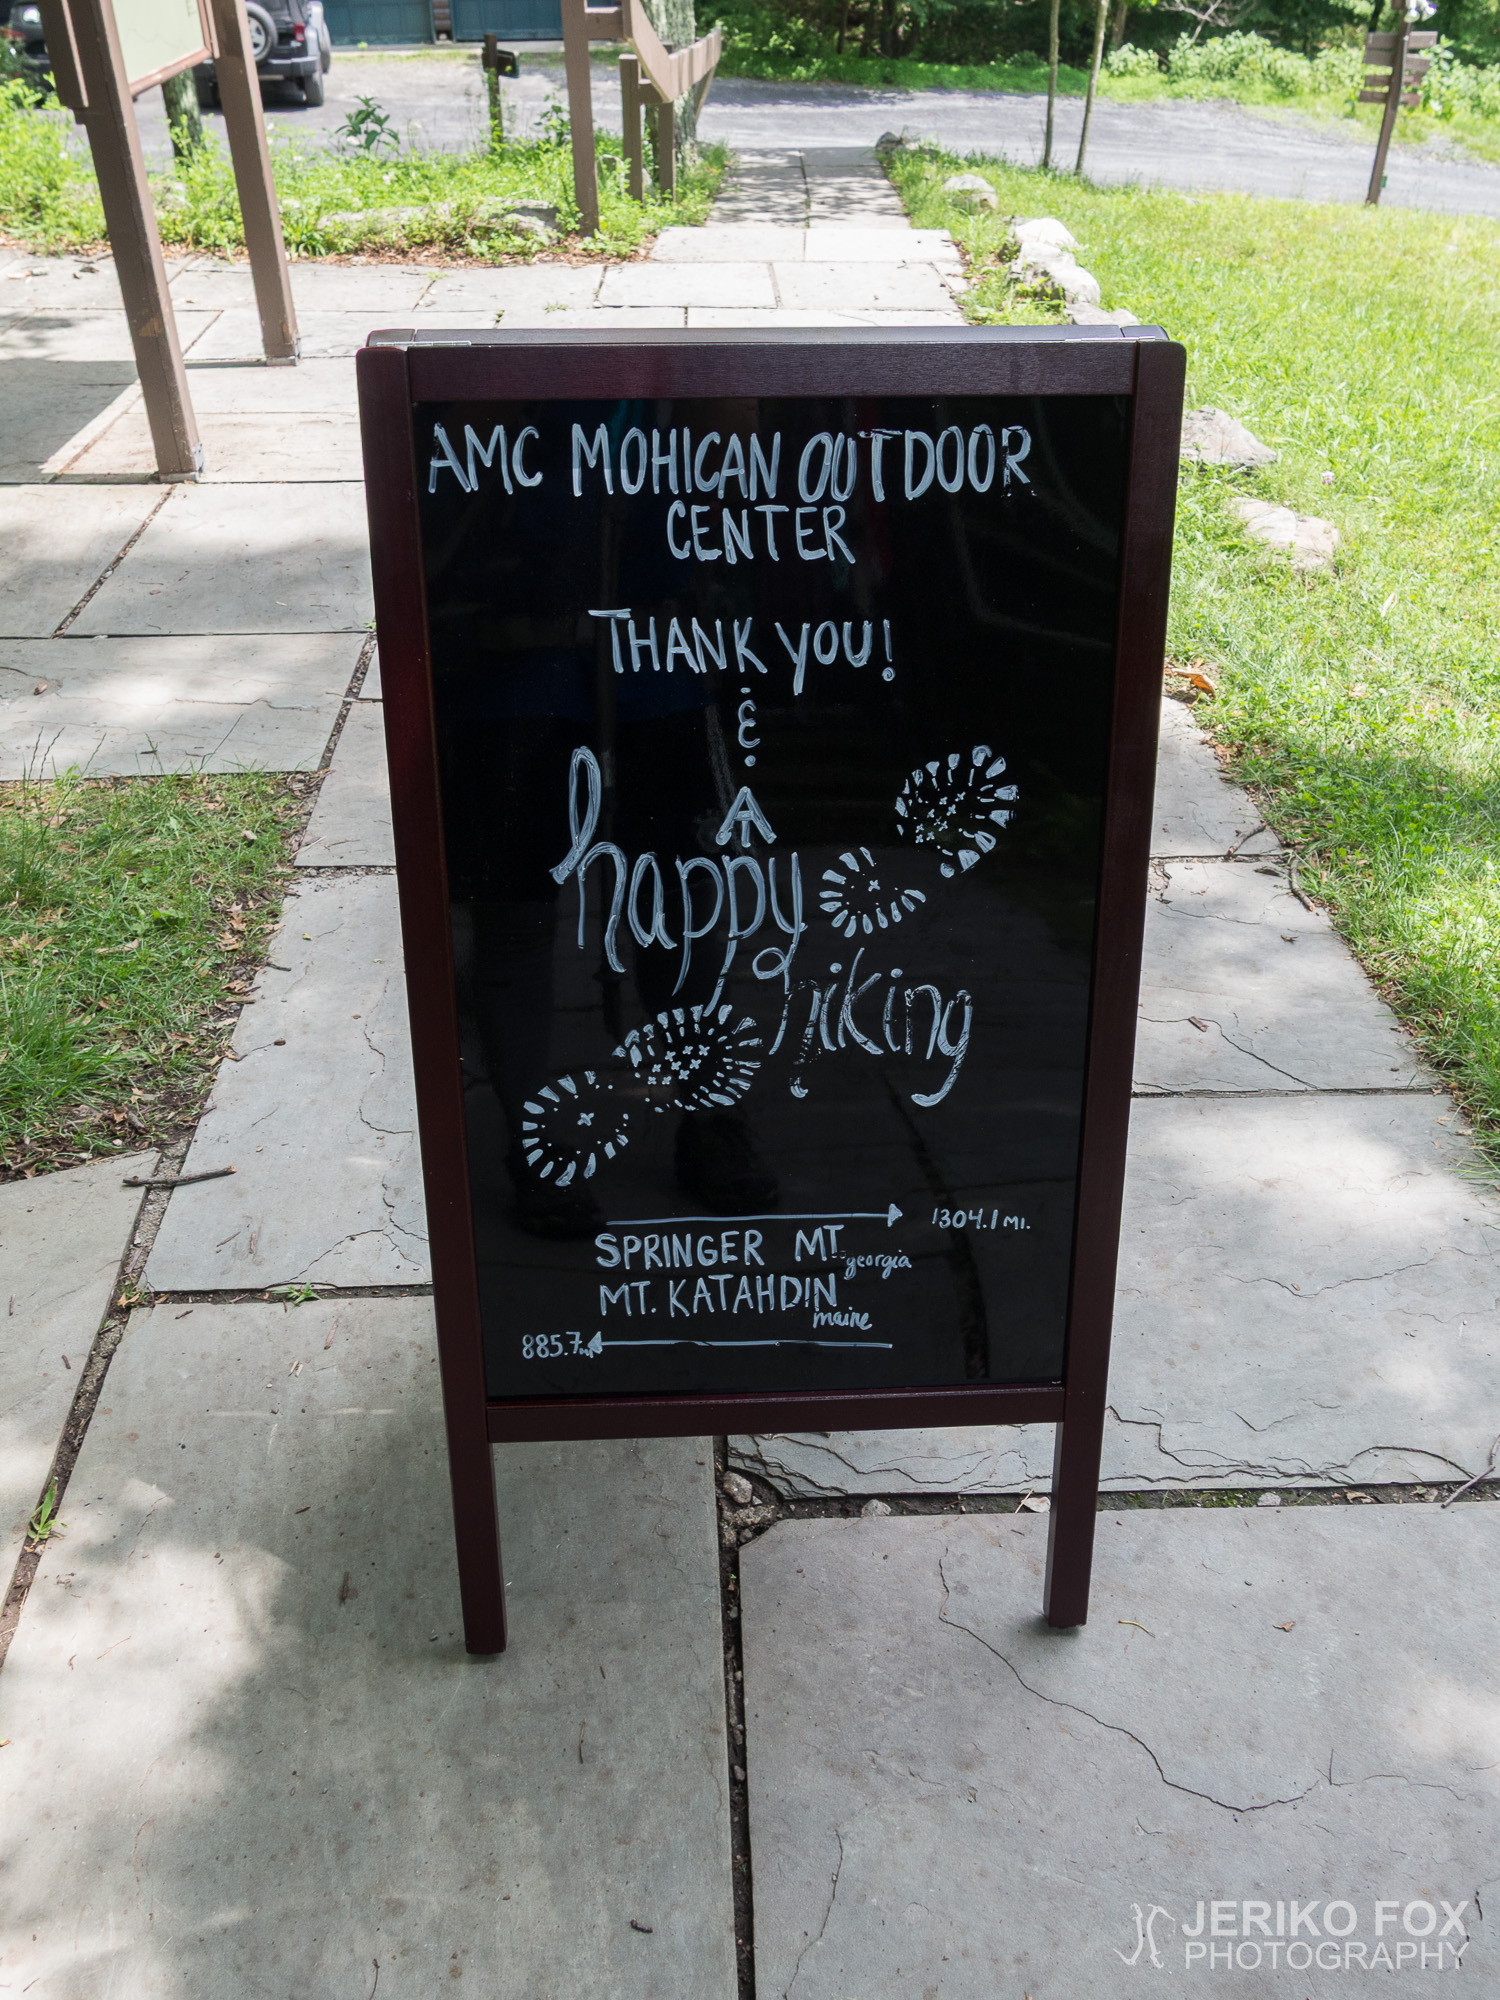 AMC MOHICAN OUTDOOR
CENTER
THANK YOU!
&
AT
happy
hiking
1304.1 MI.
SPRINGER MT. georgia
MT. KATAHDIN maine
885.7 mi
JERIKO FOX
PHOTOGRAPHY